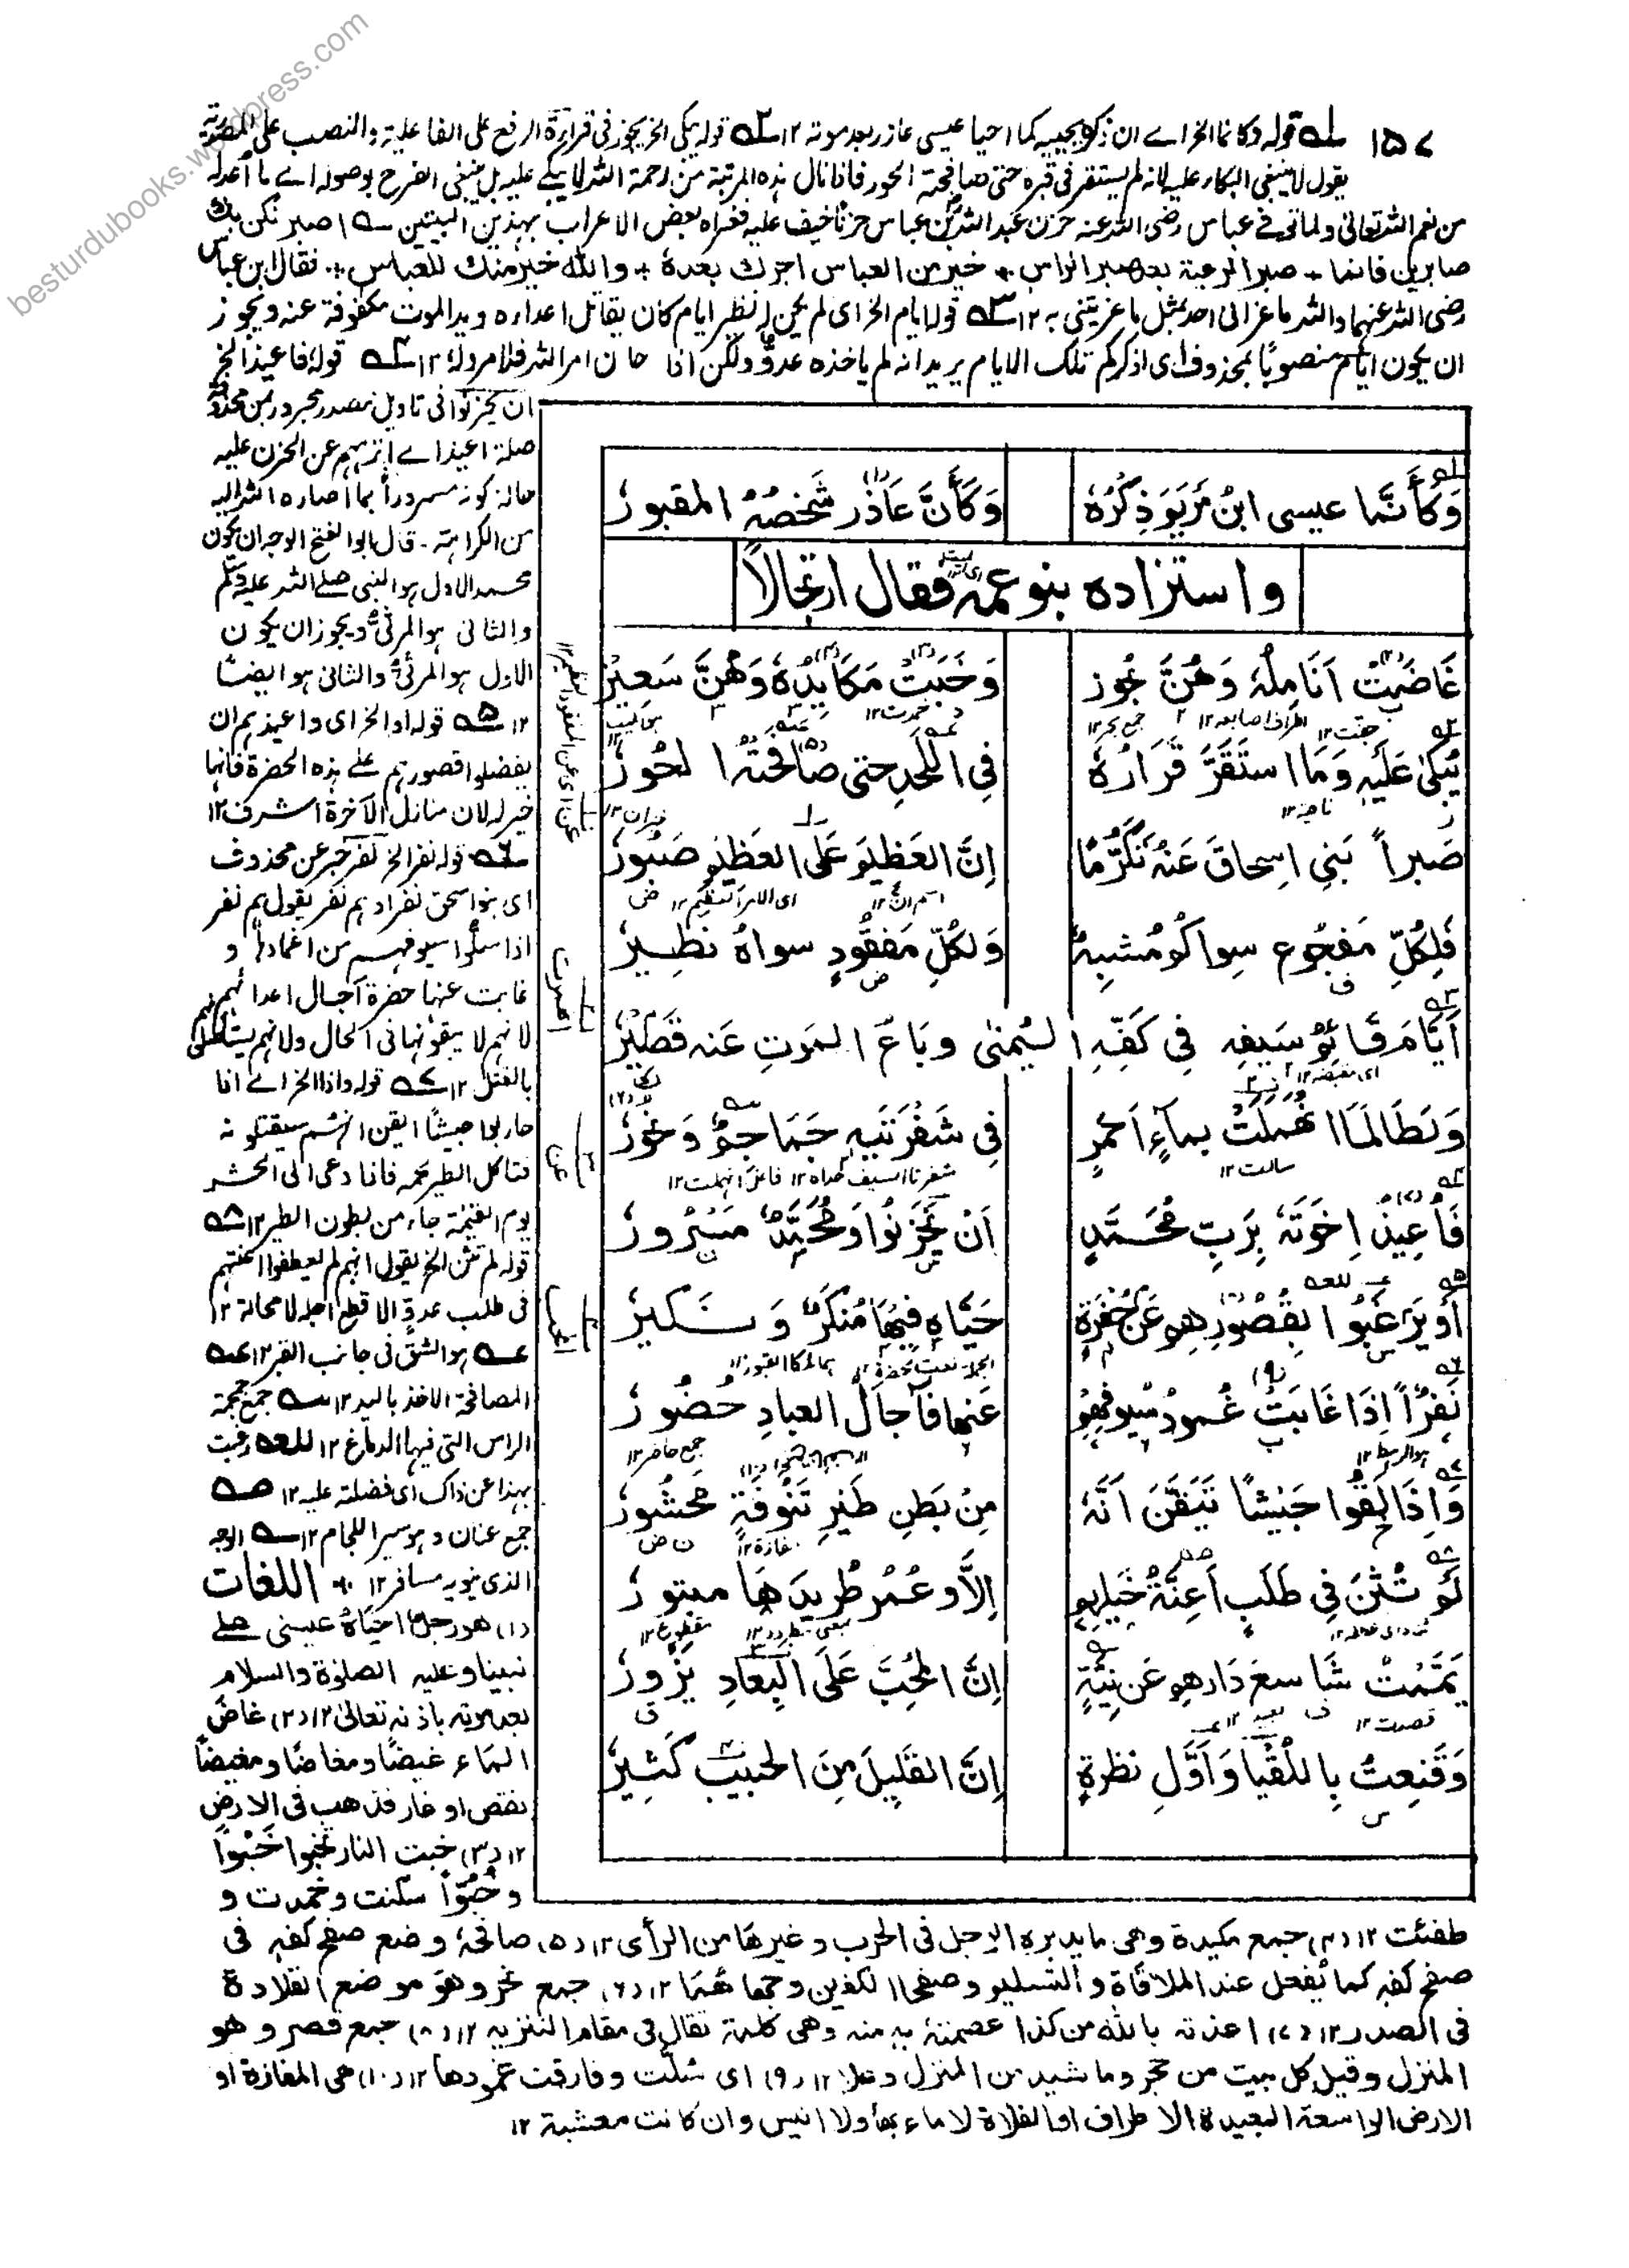 besturdubooks.wordpress.com
١٥٧ قوله وكانما الخ اے ان ذكره يحييه كما احيا عيسى عازر بعد موته ١٢ قوله يبكى الخ يجوز فى قراره الرفع على الفاعلية والنصب على المصدرية
يقول لا ينبغى البكاء عليه لانه لم يستقر فى قبره حتى صافحته الحور فاذا نال هذه المرتبة من رحمة الله لا يبكے عليه بل ينبغى الفرح بوصوله اے ما أعد له
من نعم الله تعالى ولما توفے عباس رضى الله عنه حزن عبد الله بن عباس حزنًا خيف عليه فعزاه بعض الاعراب بهذين البيتين اصبر نكن بك
صابرين فانما ٭ صبر الرعية بعد صبر الراس ٭ خير من العباس اجرك بعدهٗ ٭ والله خير منك للعباس ٭ فقال ابن عباس
رضى الله عنهما والله ما عزانى احد بمثل ما عزيتنى به ١٢ قوله ايام الخ اى لم يكن له نظير ايام كان يقاتل اعداءه ويد الموت مكفوفة عنه ويجوز
ان يكون ايام منصوبًا بمحذوف اى اذكركم تلك الايام يريد انه لم ياخذه عدوٌّ ولكن اذا حان امر الله فلا مرد له ١٢ قوله فاعيذ الخ
ان يحزنوا فى تاويل مصدر مجرور بمن محذوفة
صلة اعيذ اے انزههم عن الحزن عليه
حالة كونه مسرورًا بما اصاره الله اليه
من الكرامة ۔ قال ابو الفتح الوجه ان يكون
محمد الاول هو النبى صلے الله عليه وسلم
والثانى هو المرثىُّ ويجوز ان يكون
الاول هو المرثىُّ والثانى هو ايضًا
١٢ قوله او الخ اى واعيذهم ان
يفضلوا قصورهم علے هذه الحضرة فانها
خير له لان منازل الآخرة اشرف ١٢
قوله نفر الخ نفر خبر عن محذوف
اى بنو اسحق نفر او هم نفر يقول هم نفر
اذا سلّوا سيوفهم من اغمادها و
غابت عنها حضرة آجال اعدائهم
لانهم لا يبقونها فى الحال ولانهم
بالقتل ١٢ قوله واذا الخ اے اذا
حاربوا جيشًا ايقن انهم سيقتلونه
فتاكل الطير لحمه فاذا دعى الى الحشر
يوم القيٰمة جاء من بطون الطير ١٢
قوله لم تثن الخ يقول انهم لم يعطفوا اعنتهم
فى طلب عدوٍّ الا قطع اجله لا محالة ١٢
هو الشق فى جانب القبر ١٢
المصافحة الاخذ باليد ١٢ جمع جمجمة
الراس التى فيها الدماغ ١٢ رغبت
بهذا عن ذاك اى فضلته عليه ١٢
جمع عنان وهو سير اللجام ١٢ الوجه
الذى ينويه مسافر ١٢ ٭ اللغات
(١) هو رجلٌ احياهٗ عيسى صلے
نبينا وعليه الصلوة والسلام
بعد موته باذنه تعالى ١٢ (٢) غاض
الماء غيضًا ومغاضًا ومغيضًا
نقص او غار فذهب فى الارض
١٢ (٣) خبت النار تخبوا خَبْوًا
وخُبُوًّا سكنت وخمدت و
وَكَأَنَّمَا عيسى ابنُ مَريَمَ ذِكْرُهٗ وَكَأَنَّ عَاذَرَ شَخصُهُ المقبورُ
واستزاده بنو عمه فقال ارتجالًا
غَاضَتْ اَنَامِلُهٗ وَهُنَّ بُحُورٌ وَخَبَتْ مَكَايِدُهٗ وَهُنَّ سَعِيْرٌ
يُبكىٰ عَلَيْهِ وَمَا استَقَرَّ قَرَارُهٗ فِى اللَّحَدِ حتى صَافَحَتْهُ الحُورُ
صَبراً بَنِى اِسحاقَ عَنهُ تَكَرُّمًا اِنَّ العَظِيمَ عَلَى العَظِيمِ صَبُورٌ
فَلِكُلِّ مَفجُوعٍ سِواكُم مُشبِهٌ وَلِكُلِّ مَفقُودٍ سواهُ نظِيرٌ
اَيَّامَ قَائِمُ سَيفِهِ فِى كَفِّهِ اليُمنٰى وبَاعُ الموتِ عَنه قَصِيْرُ
وَلَطَالَمَا انْهَمَلَتْ بِماءٍ اَحمرٍ فِى شَفْرَتَيهِ جَمَاجِمٌ وَنُحُورُ
فَاُعِيذُ اِخوَتَهٗ بِرَبِّ مُحَمَّدٍ اَنْ يَحْزَنُوا وَمُحَمَّدٌ مَسْرُورُ
اَو يَرغَبُوا بِقُصُورِهِم عَن حُفرَةٍ حَيَّاهُ فِيهَا مُنكَرٌ وَنَكيرُ
نَفَرٌ اِذَا غَابَتْ غُمودُ سُيوفِهِم عَنها فَآجَالُ العبادِ حُضُورُ
وَاِذَا لَقُوا جَيْشًا تَيَقَّنَ اَنَّهٗ مِنْ بَطنِ طَيرِ تَنُوفَةٍ مَحْشُورُ
لَم تُثْنَ فِى طَلَبٍ اَعِنَّةُ خَيلِهِم اِلَّا وَعُمْرُ طَرِيدِهَا مبتورُ
يَمَّمْتُ شَاسعَ دَارِهِم عَن نِيَّةٍ اِنَّ المُحِبَّ عَلَى البِعَادِ يَزُورُ
وَقَنِعتُ بِاللُّقْيَا وَاَوَّلِ نظرةٍ اِنَّ القَلِيلَ مِنَ الحبيبِ كَثِيرُ
طفئت ١٢ (٤) جمع مكيدة وهى ما يدبره الرجل فى الحرب وغيرها من الرأى ١٢ (٥) صافحهٗ وضع صفح كفه فى
صفح كفه كما يُفعل عند الملاقاة والتسليم وصفحا الكفين وجهاهُما ١٢ (٦) جمع نحر وهو موضع القلادة
فى الصدر ١٢ (٧) اعذته بالله من كذا عصمتهٗ به منه وهى كلمة تقال فى مقام التنزيه ١٢ (٨) جمع قصر وهو
المنزل وقيل كل بيت من حجر وما شيد من المنزل وعلا ١٢ (٩) اى سُلّت وفارقت غمودها ١٢ (١٠) هى المفازة او
الارض الواسعة البعيدة الاطراف او الفلاة لا ماء بها ولا انيس وان كانت معشبة ١٢